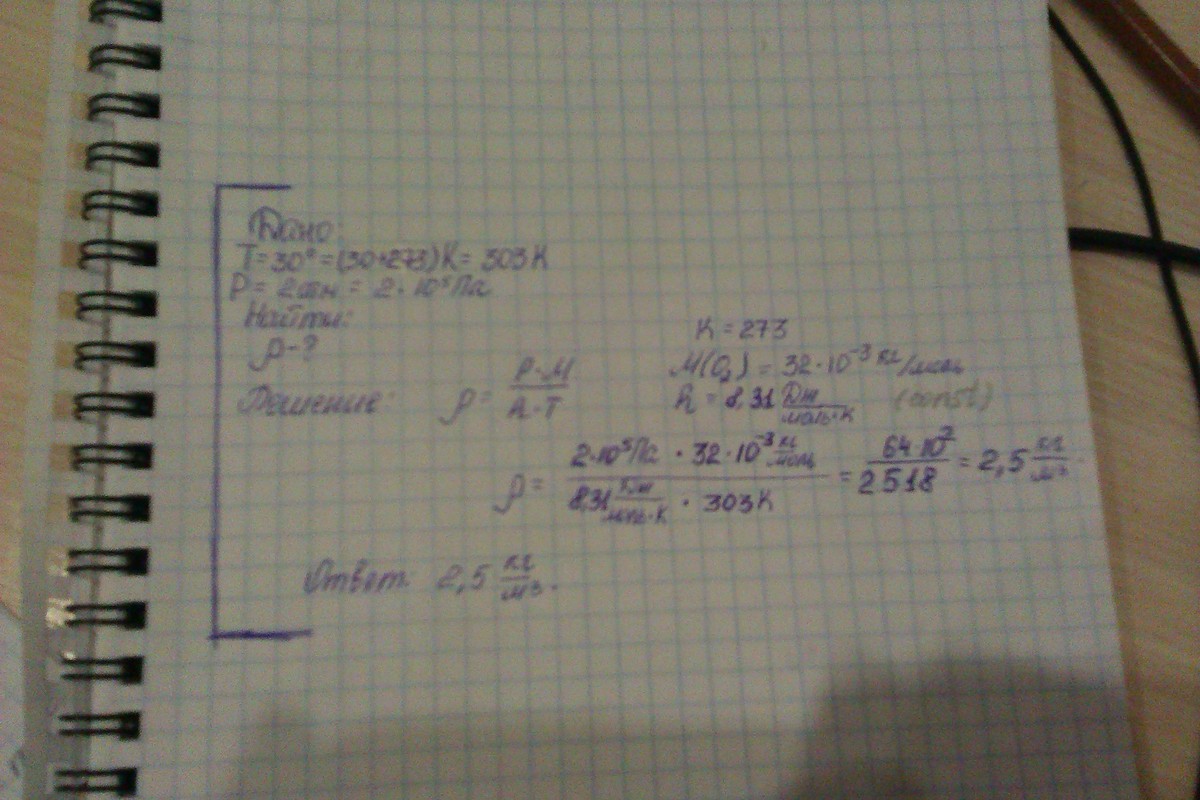 Дано:
T = 30° = (30+273)K = 303K
P = 2атм = 2·10⁵Па
Найти:
ρ-?
K = 273
M(O₂) = 32·10⁻³ кг/моль
Решение: ρ = P·M / R·T
R = 8,31 Дж/моль·K (const)
ρ = 2·10⁵Па · 32·10⁻³ кг/моль / 8,31 Дж/моль·K · 303K = 64·10² / 2518 = 2,5 кг/м³.
Ответ: 2,5 кг/м³.